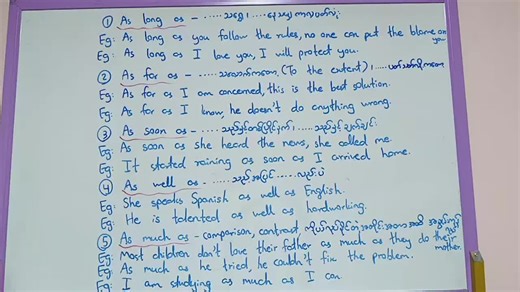 ① As long as - .....သရွေ့၊ ....နေသမျှကာလပတ်လုံး
Eg: As long as you follow the rules, no one can put the blame on you
Eg: As long as I love you, I will protect you.
② As far as - ....သလောက်ကတော့, (To the extent)၊ .....ပတ်သက်လို့ကတော့
Eg: As far as I am concerned, this is the best solution.
Eg: As far as I know, he doesn't do anything wrong.
③ As soon as - ....သည်နှင့်တစ်ပြိုင်နက်၊ ....သည်နှင့်ချက်ချင်း
Eg: As soon as she heard the news, she called me.
Eg: It started raining as soon as I arrived home.
④ As well as - .....သည့်အပြင် .....လည်းပဲ
Eg: She speaks Spanish as well as English.
Eg: He is talented as well as hardworking.
⑤ As much as - comparison, contrast,
Eg: Most children don't love their father as much as they do their mother.
Eg: As much as he tried, he couldn't fix the problem.
Eg: I am studying as much as I can.